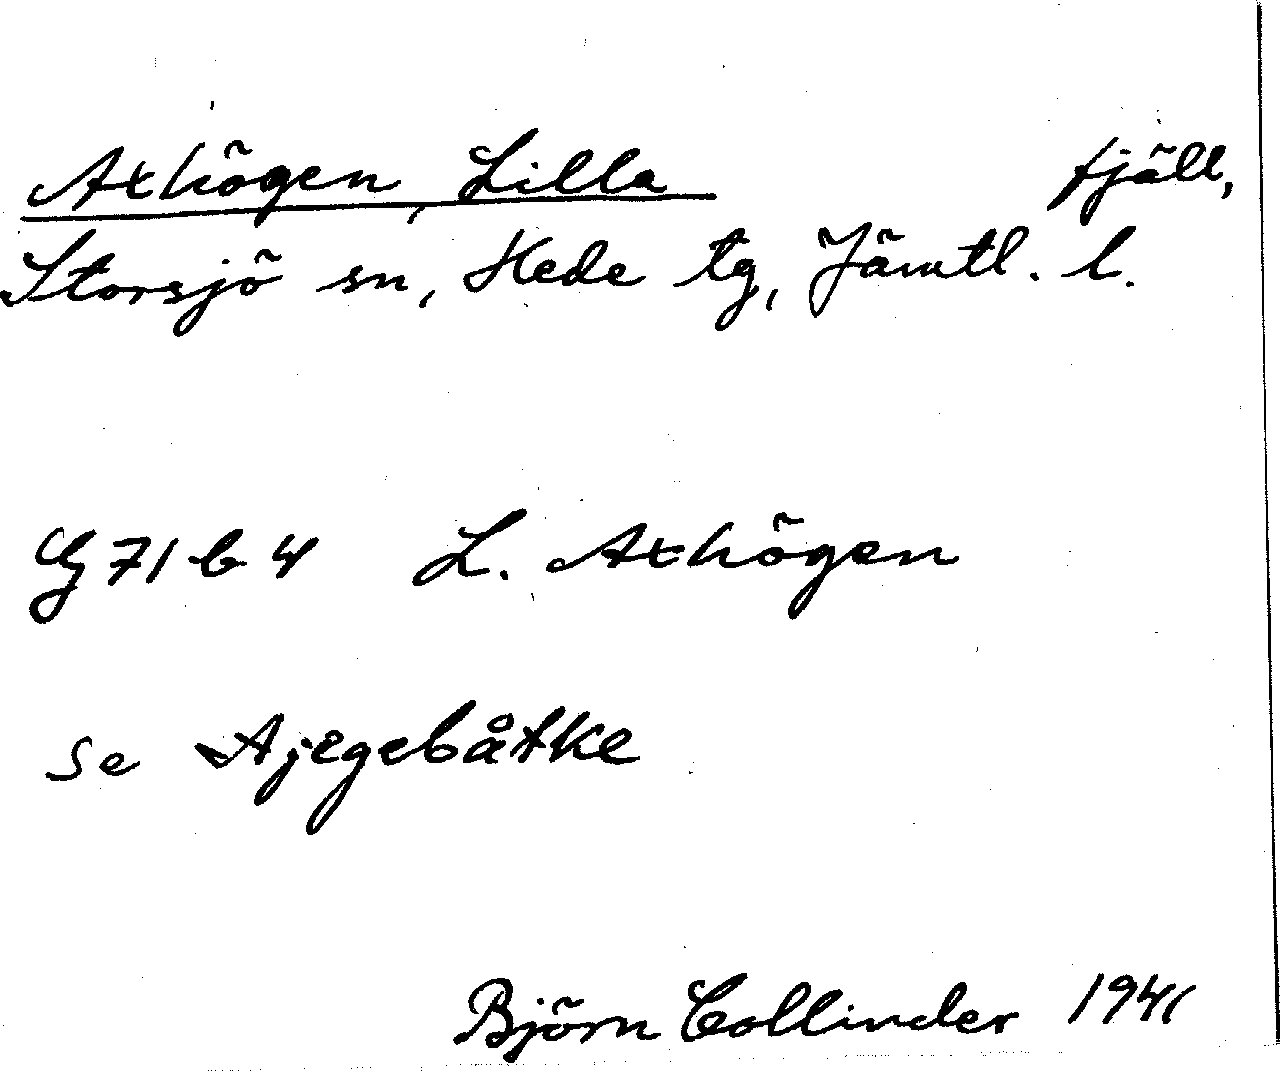 Axhögen, Lilla fjäll,
Storsjö sn, Hede tg, Jämtl. l.
G 71 b 4 L. Axhögen
se Ajegebåtke
Björn Collinder 1941